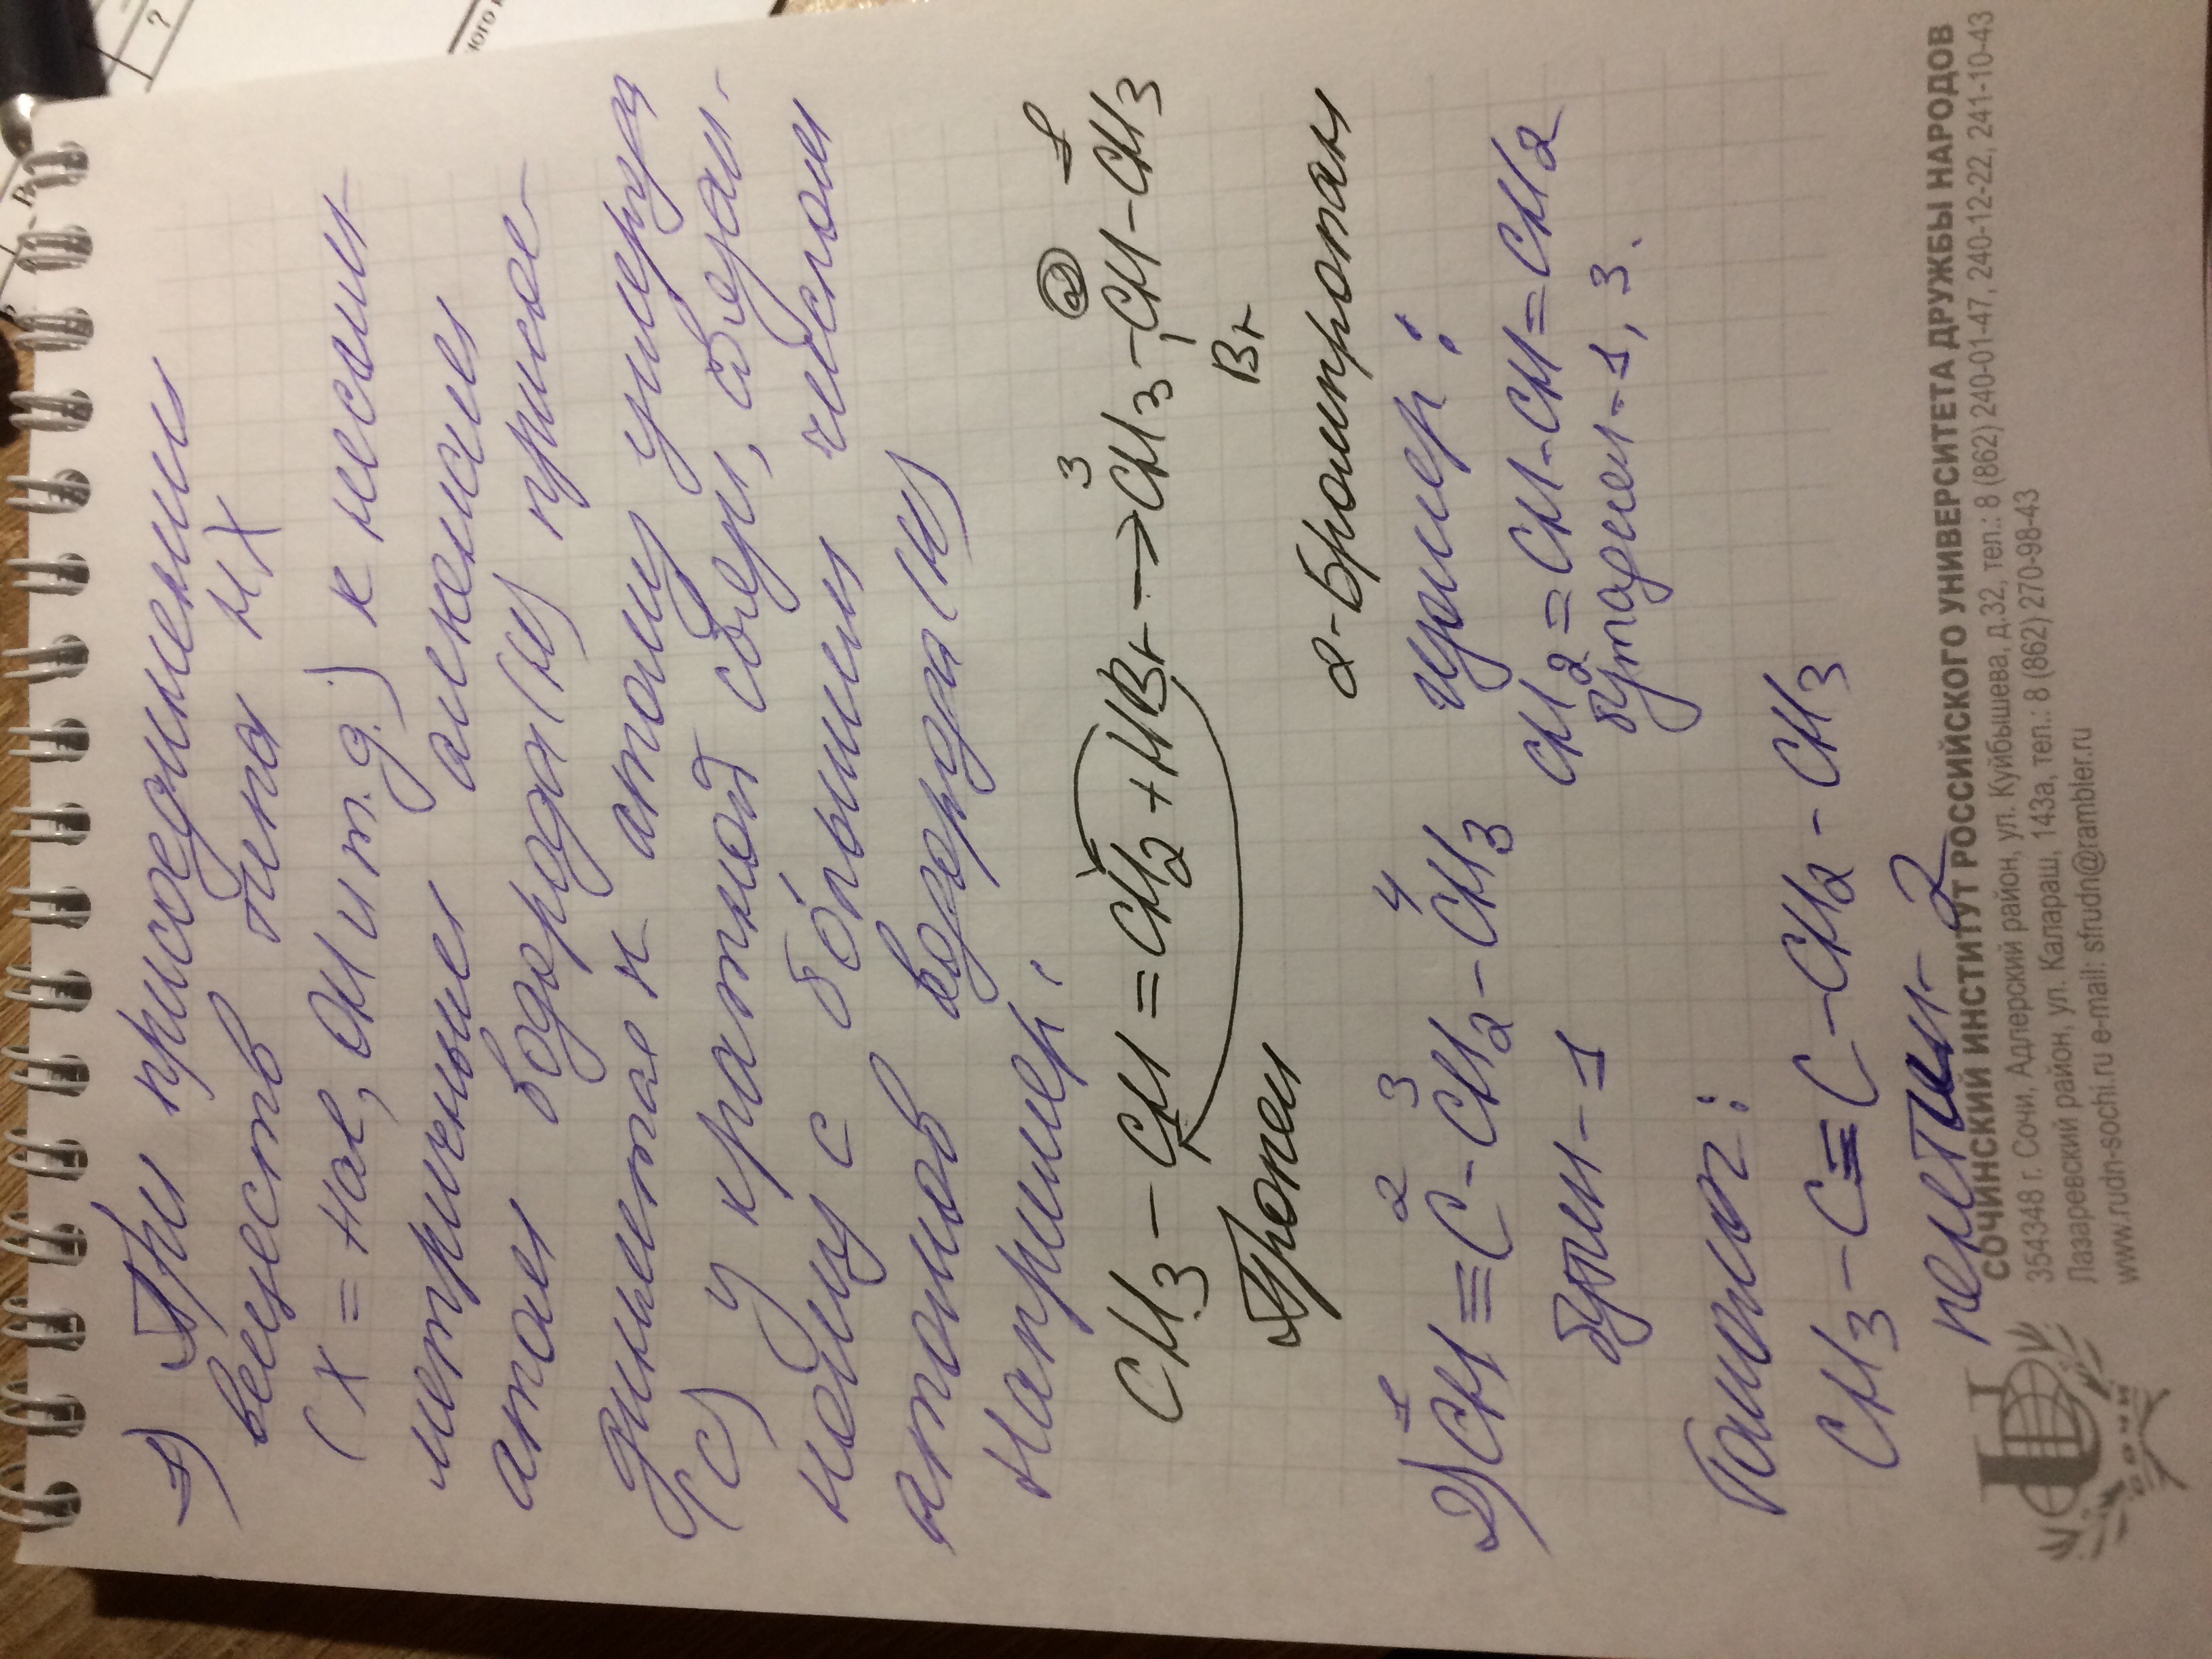 1) При присоединении
веществ типа HX
(X = Hal, OH и т.д.) к несим-
метричным алкенам
атом водорода(H) присое-
диняется к атому углерода
(C) у кратной связи, связан-
ному с бо́льшим числом
атомов водорода(H)
Например:
3 ② 1
CH3 - CH = CH2 + HBr → CH3 - CH - CH3
Br
Пропен
2-бромпропан
1 2 3 4
2) CH ≡ C - CH2 - CH3
бутин - 1
изомер:
CH2 = CH - CH = CH2
бутадиен - 1, 3.
Гомолог:
CH3 - C ≡ C - CH2 - CH3
пентин - 2
СОЧИНСКИЙ ИНСТИТУТ РОССИЙСКОГО УНИВЕРСИТЕТА ДРУЖБЫ НАРОДОВ
354348 г. Сочи, Адлерский район, ул. Куйбышева, д.32, тел.: 8 (862) 240-01-47, 240-12-22, 241-10-43
Лазаревский район, ул. Калараш, 143а, тел.: 8 (862) 270-98-43
www.rudn-sochi.ru e-mail: sfrudn@rambler.ru
СОЧИ
?